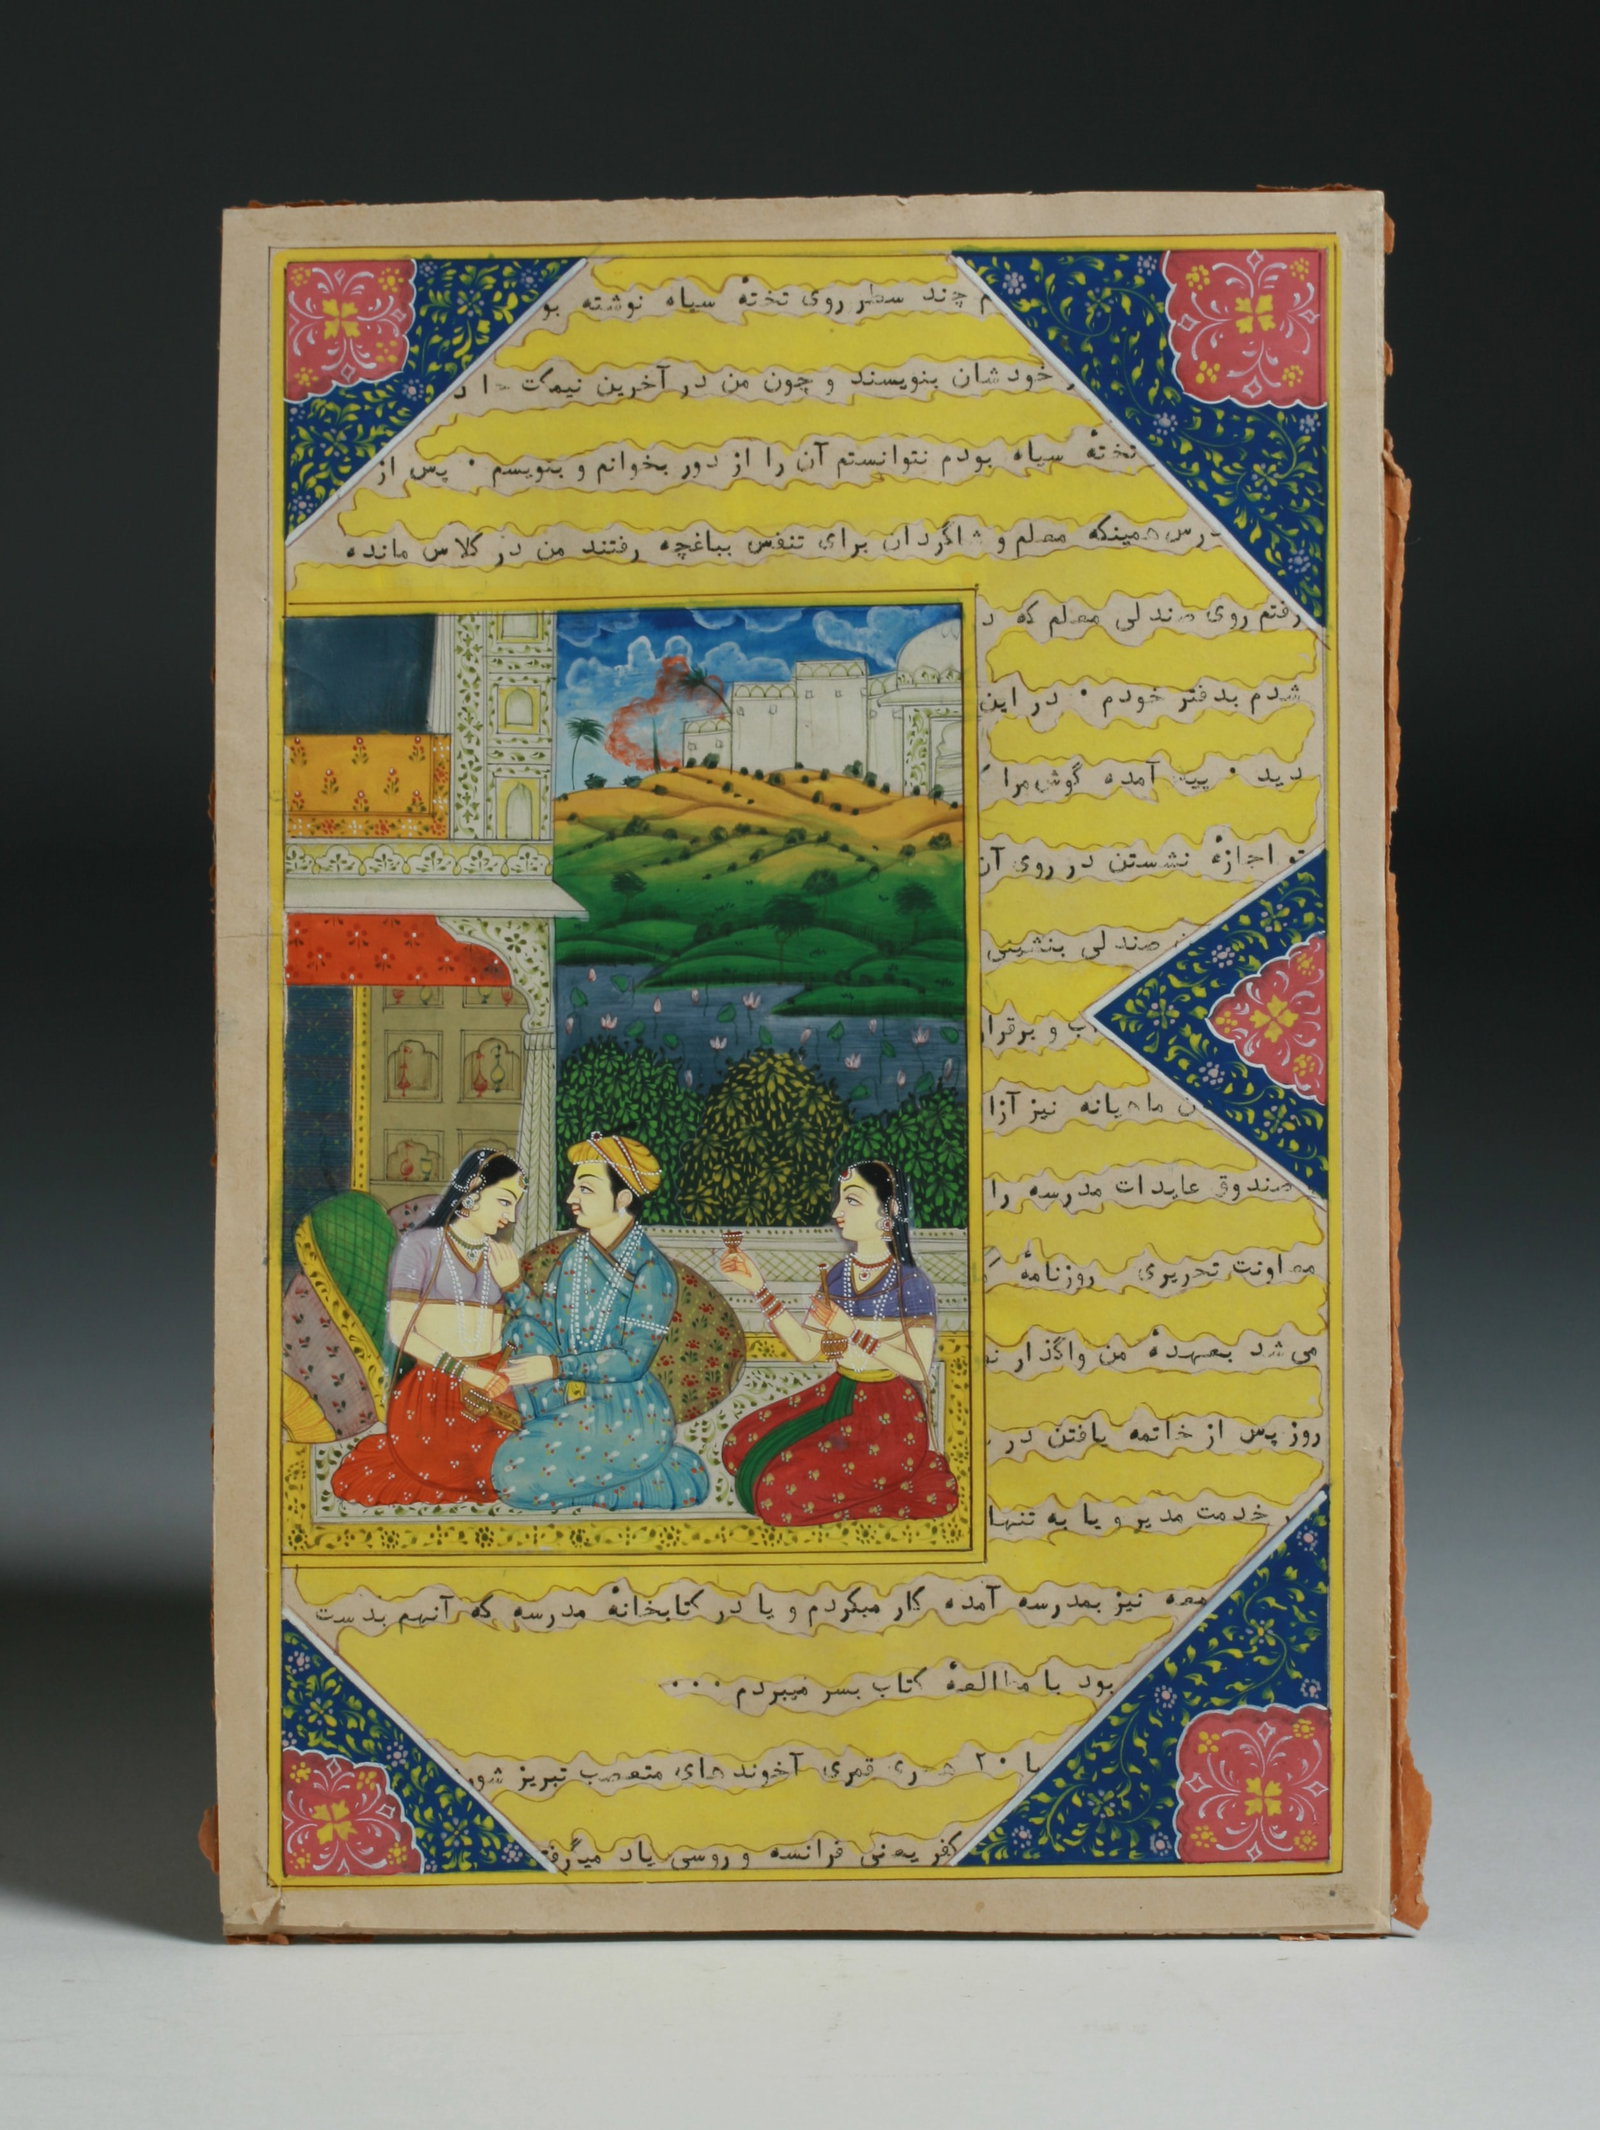 چند سطر روی تختهٔ سیاه نوشته بو
خودشان بنویسند و چون من در آخرین نیمکت
تختهٔ سیاه بودم نتوانستم آن را از دور بخوانم و بنویسم ۰ پس از
درس همینکه معلم و شاگردان برای تنفس بباغچه رفتند من در کلاس مانده
رفتم روی صندلی معلم که د
شدم بدفتر خودم ۰ در این
دید ۰ آمده گوش مرا
تو اجازهٔ نشستن در روی آن
صندلی بنشینی
و برقرار
ماهیانه نیز آزا
صندوق عایدات مدرسه را
معاونت تحریری روزنامهٔ
می شد بعهدهٔ من واگذار نم
روز پس از خاتمه یافتن در
خدمت مدیر و یا به تنها
نیز بمدرسه آمده کار میکردم و یا در کتابخانهٔ مدرسه که آنهم بدست
بود با مطالعهٔ کتاب بسر میبردم ۰۰۰
۲۰ هجری قمری آخوندهای متعصب تبریز شور
کفر یعنی فرانسه و روسی یاد میگرفت